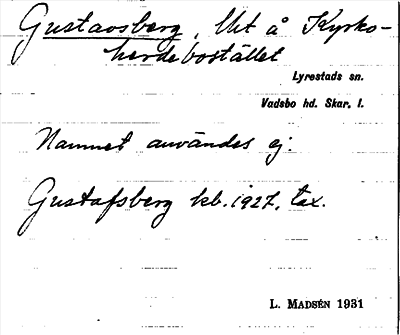 Gustavsberg, Utt å Kyrko-
herdebostället
Lyrestads sn.
Vadsbo hd. Skar. l.
Namnet användes ej.
Gustafsberg kb. 1927, tax.
L. MADSÉN 1931